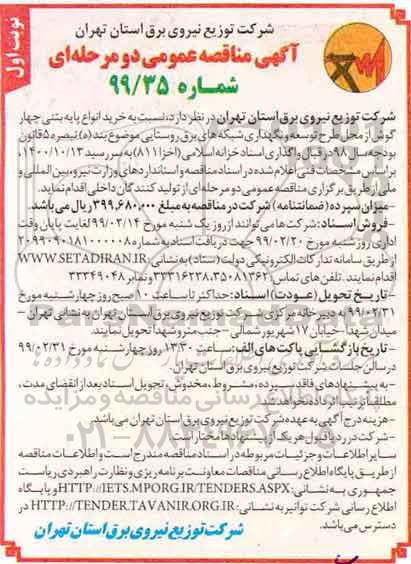 نوبت اول
شرکت توزیع نیروی برق استان تهران
آگهی مناقصه عمومی دو مرحله‌ای
شماره ۹۹/۳۵
شرکت توزیع نیروی برق استان تهران در نظر دارد، نسبت به خرید انواع پایه بتنی چهار
گوش از محل طرح توسعه و نگهداری شبکه های برق روستایی موضوع بند (ه) تبصره ۵ قانون
بودجه سال ۹۸ در قبال واگذاری اسناد خزانه اسلامی (اخزا ۸۱۱) به سررسید ۱۴۰۰/۱۰/۱۳،
براساس مشخصات فنی اعلام شده در اسناد مناقصه و استانداردهای وزارت نیرو، بین المللی و
ملی از طریق برگزاری مناقصه عمومی دو مرحله ای از تولید کنندگان داخلی اقدام نماید.
-میزان سپرده (ضمانتنامه) شرکت در مناقصه به مبلغ ۳۹۹,۶۸۰,۰۰۰ ریال می باشد.
-فروش اسناد: شرکت ها می توانند از روز یک شنبه مورخ ۹۹/۰۲/۱۴ لغایت پایان وقت
اداری روز شنبه مورخ ۹۹/۰۲/۲۰ جهت دریافت اسناد به شماره ۲۰۹۹۰۹۰۱۸۱۰۰۰۰۰۸
از طریق سامانه تدارکات الکترونیکی دولت (ستاد) به نشانی WWW.SETADIRAN.IR
اقدام نمایند. تلفن های تماس: ۳۵۰۸۱۳۶۲-۳۳۳۱۶۲۳۸ و نمابر ۳۳۳۴۹۰۴۸
- تاریخ تحویل (عودت) اسناد: حداکثر تا ساعت ۱۰ صبح روز چهارشنبه مورخ
۹۹/۰۲/۳۱ به دبیرخانه مرکزی - شرکت توزیع نیروی برق استان تهران به نشانی تهران -
میدان شهدا - خیابان ۱۷ شهریور شمالی - جنب مترو شهدا تحویل نمایند.
- تاریخ بازگشایی پاکت های الف: ساعت ۱۳:۳۰ روز چهارشنبه مورخ ۹۹/۰۲/۳۱
در سالن جلسات شرکت توزیع نیروی برق استان تهران.
- به پیشنهادهای فاقد سپرده، مشروط، مخدوش، تحویل اسناد بعد از انقضای مدت،
مطلقاً ترتیب اثر داده نخواهد شد.
-هزینه درج آگهی به عهده شرکت توزیع نیروی برق استان تهران می باشد.
-شرکت در رد یا قبول هر یک از پیشنهادها مختار است.
سایر اطلاعات و جزئیات مربوطه در اسناد مناقصه مندرج است و اطلاعات مناقصه
از طریق پایگاه اطلاع رسانی مناقصات معاونت برنامه ریزی و نظارت راهبردی ریاست
جمهوری به نشانی: HTTP://IETS.MPORG.IR/TENDERS.ASPX و پایگاه
اطلاع رسانی شرکت توانیر به نشانی: HTTP://TENDER.TAVANIR.ORG.IR در
دسترس می باشد.
شرکت توزیع نیروی برق استان تهران